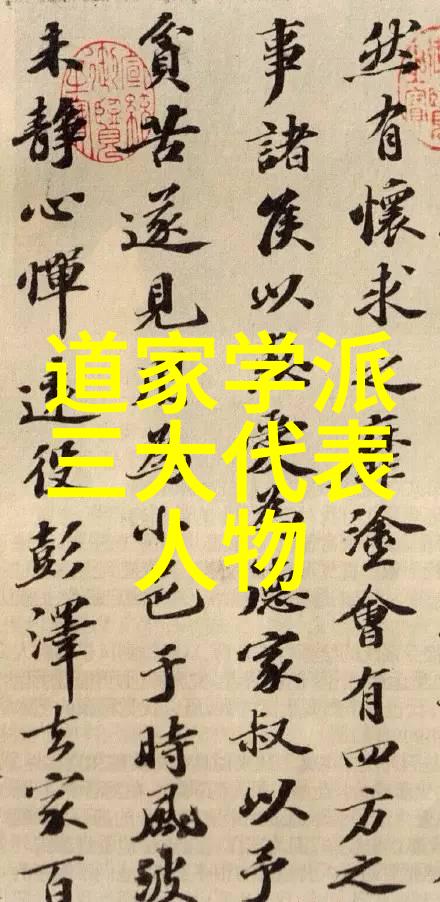 道家学派
三大代表
人物
然有懷求之靡塗會有四方之
事諸侯以惠愛為德家叔以予
貧苦遂見為小邑于時風波
未靜心憚遠役彭澤去家百